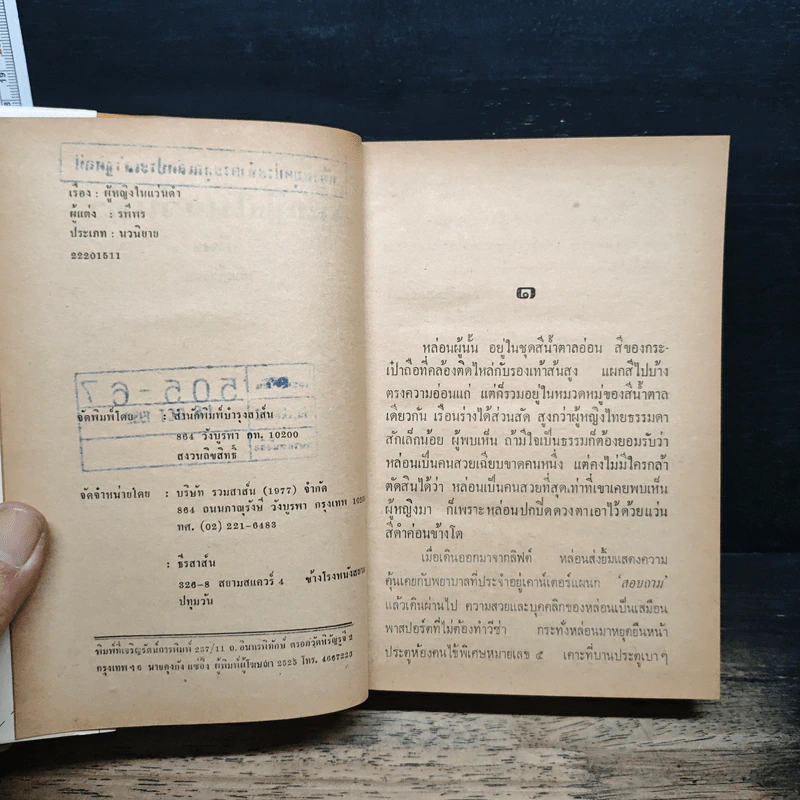 เรื่อง : ผู้หญิงในแว่นดำ
ผู้แต่ง : รพีพร
ประเภท : นวนิยาย
22201511
505-67
จัดพิมพ์โดย : สำนักพิมพ์บำรุงสาส์น
864 วังบูรพา กท. 10200
สงวนลิขสิทธิ์
จัดจำหน่ายโดย : บริษัท รวมสาส์น (1977) จำกัด
864 ถนนภาณุรังษี วังบูรพา กรุงเทพ
ทศ. (02) 221-6483
: ธีรสาส์น
326-8 สยามสแควร์ 4 ข้างโรงหนังสยาม
ปทุมวัน
พิมพ์ที่เจริญรัตน์การพิมพ์ 257/11 ถ. อินทรพิทักษ์ ตรอกวัดหิรัญรูจี 2
กรุงเทพ ฯ ผู้พิมพ์ผู้โฆษณา 2525 โทร. 4667223
๑
หล่อนผู้นั้น อยู่ในชุดสีน้ำตาลอ่อน สีของกระ-
เป๋าถือที่คล้องติดไหล่กับรองเท้าส้นสูง แผกสีไปบ้าง
ตรงความอ่อนแก่ แต่ก็รวมอยู่ในหมวดหมู่ของสีน้ำตาล
เดียวกัน เรือนร่างได้ส่วนสัด สูงกว่าผู้หญิงไทยธรรมดา
สักเล็กน้อย ผู้พบเห็น ถ้ามีใจเป็นธรรมก็ต้องยอมรับว่า
หล่อนเป็นคนสวยเฉียบขาดคนหนึ่ง แต่คงไม่มีใครกล้า
ตัดสินได้ว่า หล่อนเป็นคนสวยที่สุดเท่าที่เขาเคยพบเห็น
ผู้หญิงมา ก็เพราะหล่อนปกปิดดวงตาเอาไว้ด้วยแว่น
สีดำค่อนข้างโต
เมื่อเดินออกมาจากลิฟต์ หล่อนส่งยิ้มแสดงความ
คุ้นเคยกับพยาบาลที่ประจำอยู่เคาน์เตอร์แผนก 'สอบถาม'
แล้วเดินผ่านไป ความสวยและบุคคลิกของหล่อนเป็นเสมือน
พาสปอร์ตที่ไม่ต้องทำวีซ่า กระทั่งหล่อนมาหยุดยืนหน้า
ประตูห้องคนไข้พิเศษหมายเลข ๕ เคาะที่บานประตูเบา ๆ